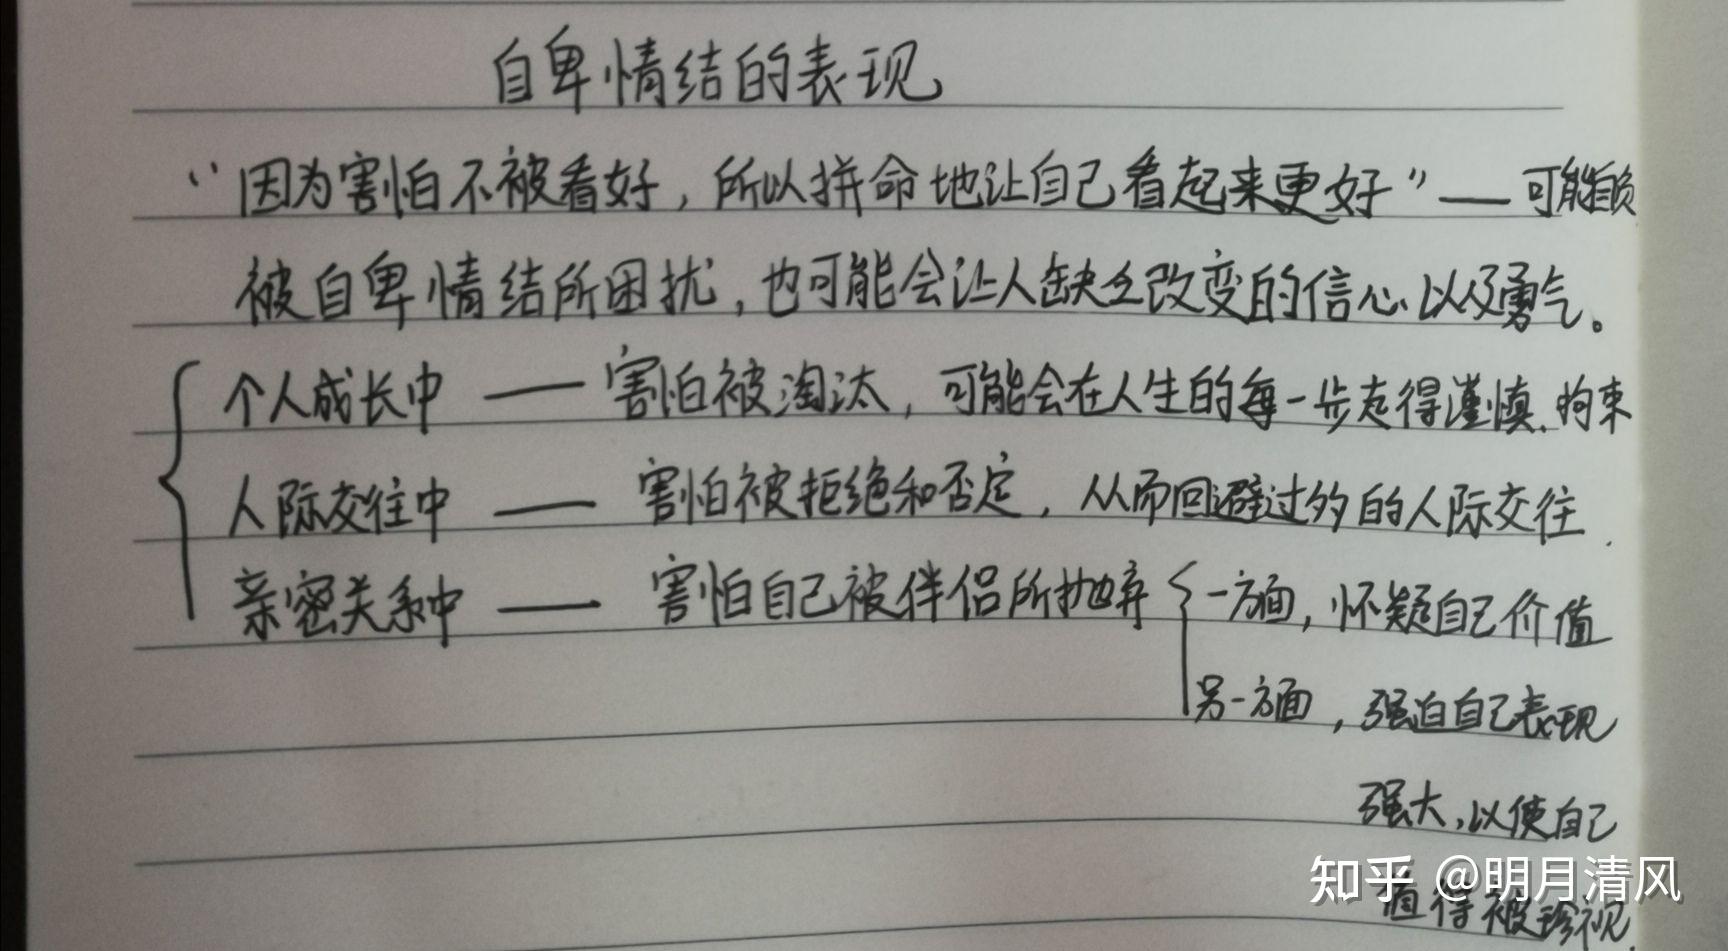 自卑情结的表现
“因为害怕不被看好，所以拼命地让自己看起来更好”——可能
被自卑情结所困扰，也可能会让人缺乏改变的信心以及勇气。
个人成长中——害怕被淘汰，可能会在人生的每一步走得谨慎、拘束
人际交往中——害怕被拒绝和否定，从而回避过多的人际交往.
亲密关系中——害怕自己被伴侣所抛弃 一方面，怀疑自己价值
另一方面，强迫自己表现
强大，以使自己
值得被珍视.
知乎 @明月清风